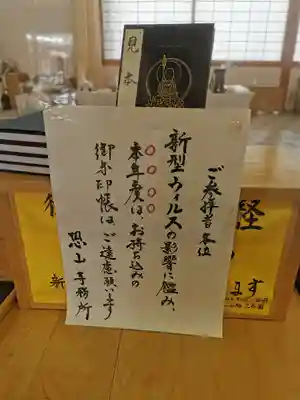 見本
ご参拝者各位
新型ウィルスの影響に鑑み、
本年度は、お持ち込みの
御朱印帳は、ご遠慮願います
恐山寺務所
経
ます